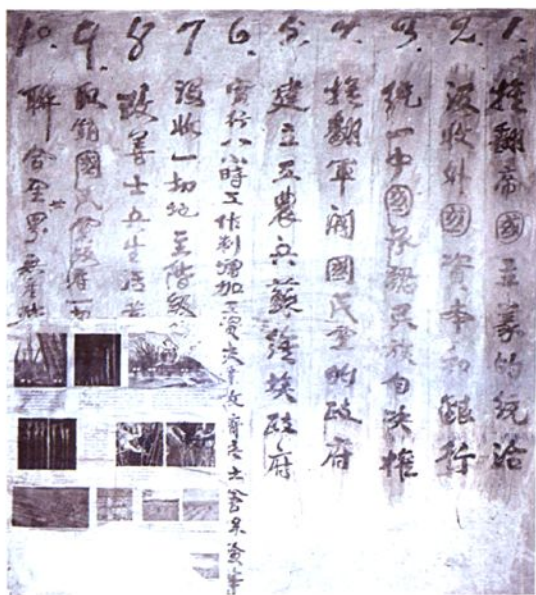 1. 推翻帝國主義的统治
2. 没收外國資本和銀行
3. 统一中國承認民族自决权
4. 推翻軍閥國民党的政府
5. 建立工農兵蘇維埃政府
6. 實行八小時工作制增加工資失業救濟 社會保險等
7. 没收一切地主階級
8. 改善士兵生活
9. 取銷國民党政府一切
10. 聯合全世界無產